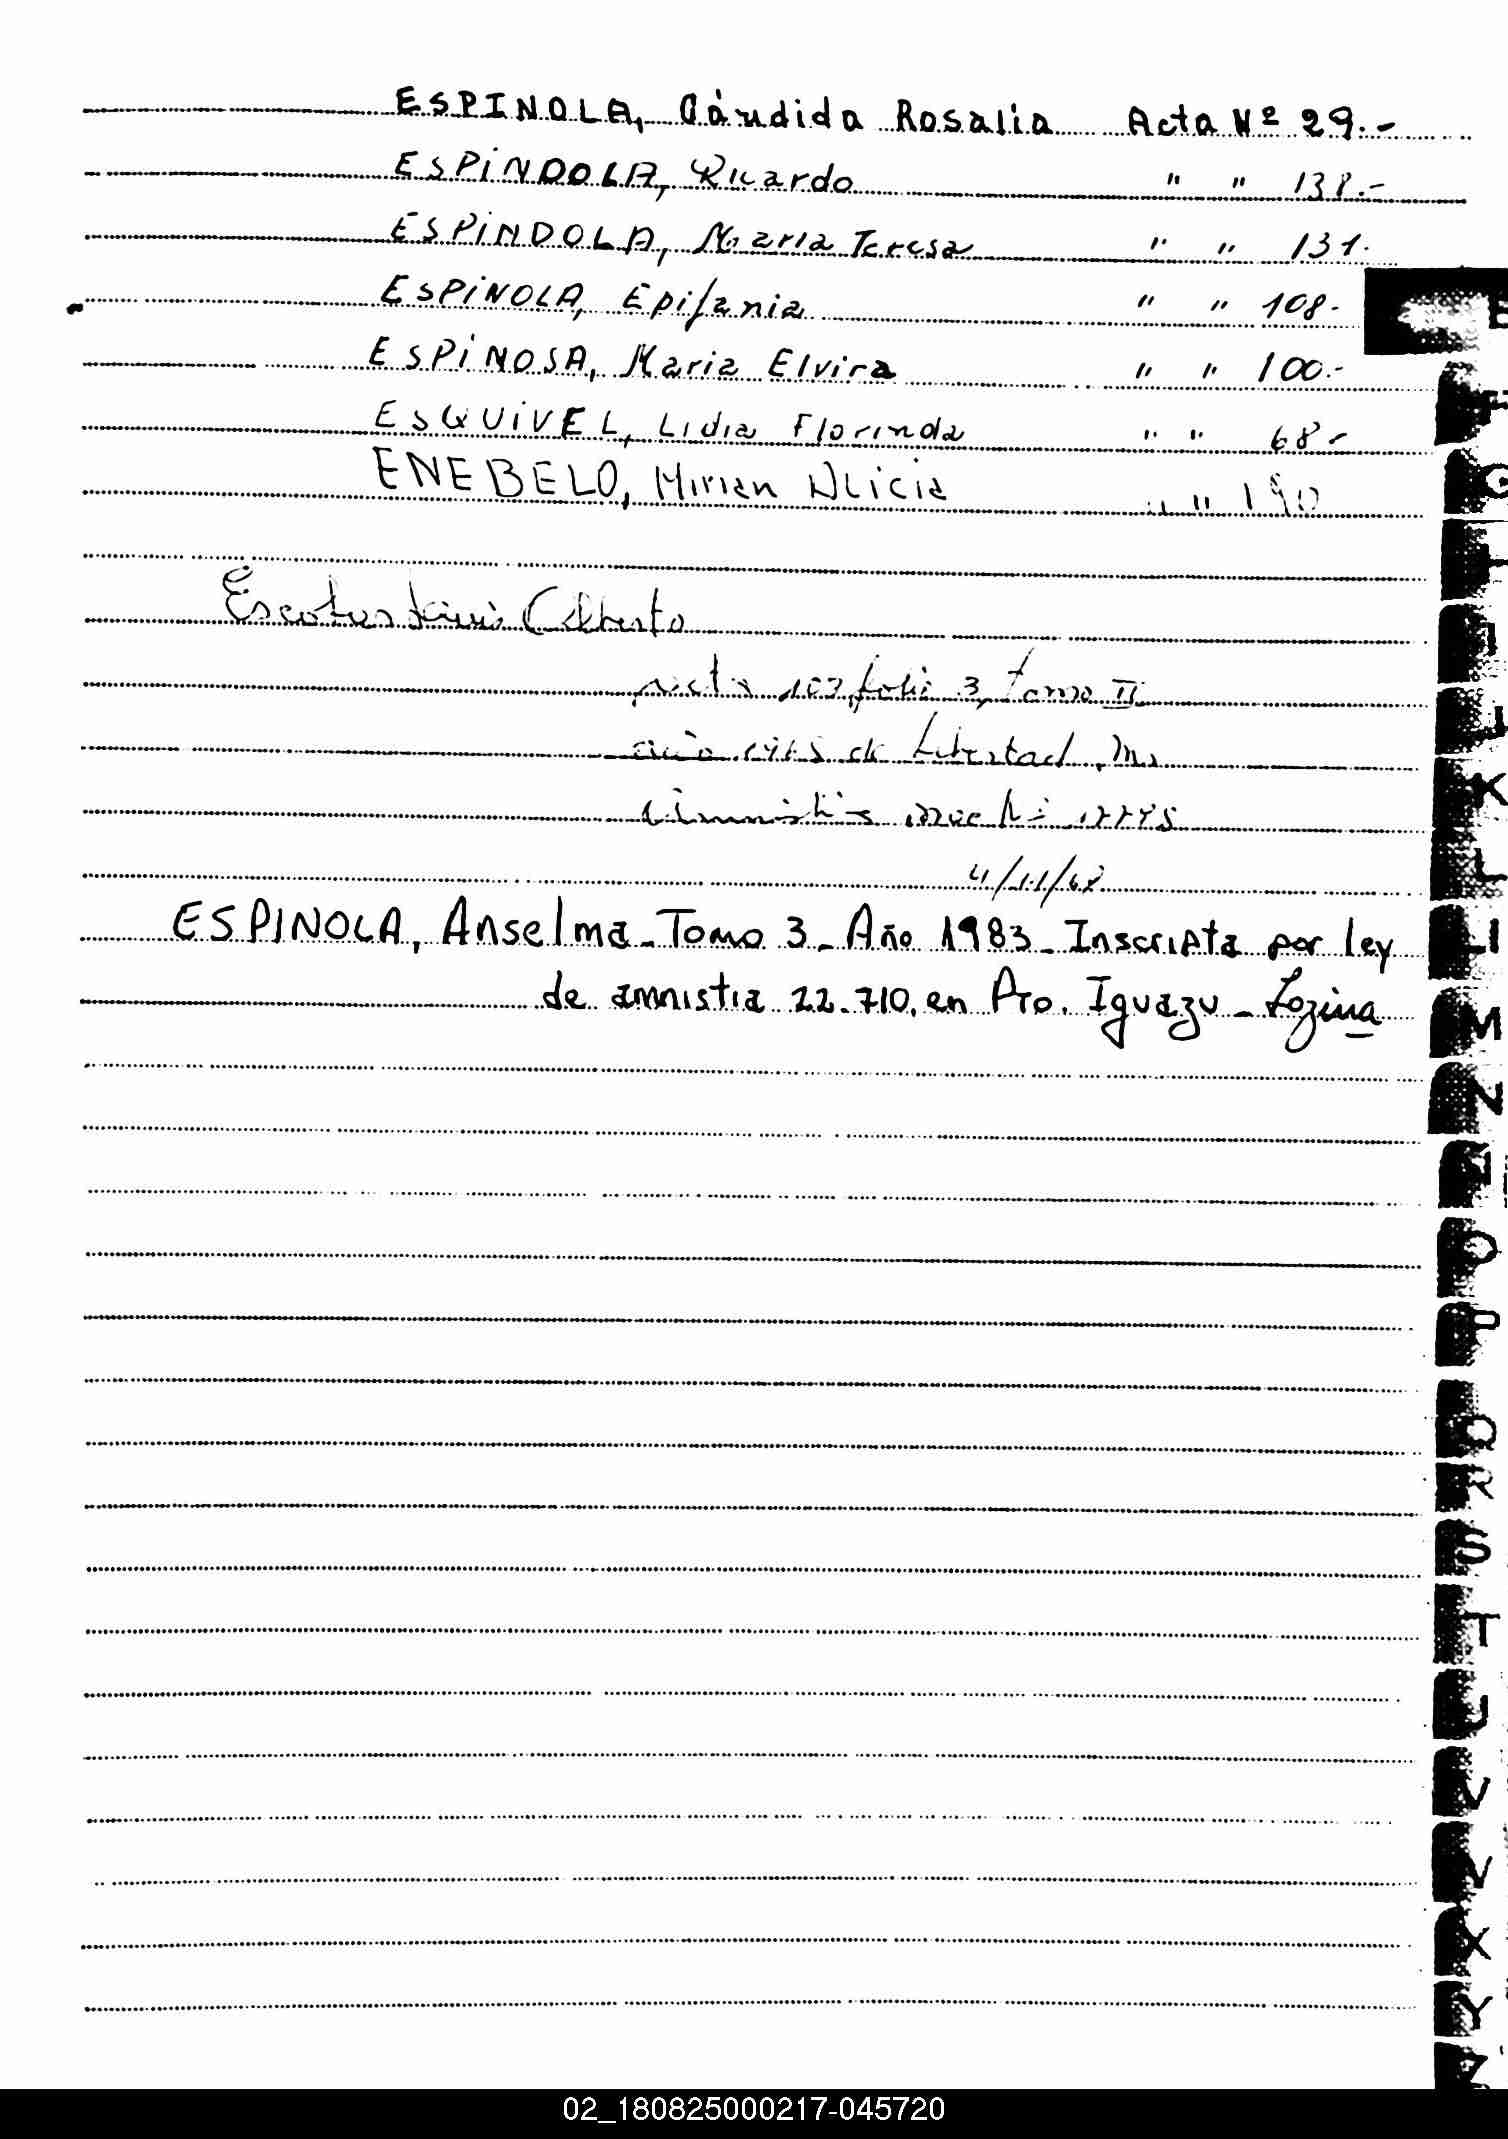 ESPINOLA, Cándida Rosalia Acta Nº 29.-
ESPINDOLA, Ricardo " " 138.-
ESPINDOLA, Maria Teresa " " 131.
ESPINOLA, Epifania " " 108.-
ESPINOSA, Maria Elvira " " 100.-
ESQUIVEL, Lidia Florinda " " 68.-
ENEBELO, Mirian Alicia " " 190
Alberto
folio 3, tomo II
de Libertad, Ms
4/11/68
ESPINOLA, Anselma - Tomo 3 - Año 1983 - Inscripta por ley
de amnistia 22.710, en Pto. Iguazu -
E
F
G
I
J
K
L
Ll
M
N
Ñ
O
P
Q
R
S
T
U
V
X
Y
Z
02_180825000217-045720